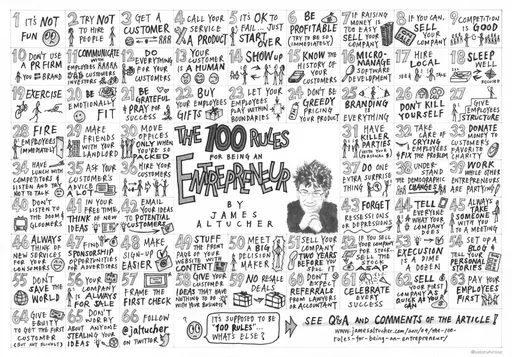 1 IT'S NOT FUN
2 TRY NOT TO HIRE PEOPLE
3 GET A CUSTOMER
4 CALL YOUR SERVICE A PRODUCT
5 IT'S OK TO FAIL... JUST START OVER
6 BE PROFITABLE (TRY TO BE SO IMMEDIATELY)
7 IF RAISING MONEY IS TOO EASY SELL YOUR COMPANY
8 IF YOU CAN, SELL YOUR COMPANY
9 COMPETITION IS GOOD
10 DON'T USE A PR FIRM
YOU BRAND
11 COMMUNICATE WITH EMPLOYEES CUSTOMERS INVESTORS
12 DO EVERYTHING FOR YOUR CUSTOMERS
13 YOUR CUSTOMER IS A HUMAN
14 SHOW UP
15 KNOW THE STORY OF YOUR CUSTOMERS
16 MICRO-MANAGE SOFTWARE DEVELOPMENT
17 HIRE LOCAL
18 SLEEP WELL
19 EXERCISE
20 BE EMOTIONALLY FIT
21 BE GRATEFUL PRAY FOR SUCCESS
22 BUY YOUR EMPLOYEES GIFTS
23 LET YOUR EMPLOYEES PLAY WITHIN BOUNDARIES
24 DON'T BE GREEDY PRICING YOUR PRODUCT
25 BRANDING IS EVERYTHING
26 DON'T KILL YOURSELF
27 GIVE EMPLOYEES STRUCTURE
28 FIRE EMPLOYEES IMMEDIATELY
29 MAKE FRIENDS WITH YOUR LANDLORD
30 MOVE OFFICES ONLY WHEN YOU'RE SO PACKED
THE 100 RULES
FOR BEING AN
ENTREPRENEUR
BY
JAMES
ALTUCHER
31 HAVE KILLER PARTIES
32 TAKE CARE OF CRYING EMPLOYEES FIX THE PROBLEM
33 DONATE MONEY TO CUSTOMER'S FAVORITE CHARITY
34 HAVE LUNCH WITH COMPETITORS LISTEN AND TRY NOT TO TALK
35 ASK YOUR CUSTOMERS ADVICE A LOT
36 HIRE YOUR CUSTOMERS
37 DO ONE SURPRISE THING
38 UNDERSTAND THE DEMOGRAPHIC CHANGES
39 WORK WHILE OTHER ENTREPRENEURS ARE PARTYING
40 DON'T LISTEN TO THE DOOM & GLOOMERS
41 IN YOUR FREE TIME, THINK OF NEW IDEAS
42 EMAIL YOUR IDEAS TO POTENTIAL CUSTOMERS
43 FORGET RECESSIONS OR DEPRESSIONS
44 TELL EVERYONE WHAT YOUR COMPANY DOES
45 ALWAYS TAKE SOMEONE WITH YOU TO A MEETING
46 ALWAYS THINK OF NEW SERVICES FOR YOUR CONSUMERS
47 FIND SPONSORSHIP OPPORTUNITIES FOR ADVERTISERS
48 MAKE SIGN-UP EASIER
49 STUFF THE FRONT PAGE OF YOUR WEBSITE WITH CONTENT
50 MEET A BIG DECISION MAKER
51 SELL YOUR COMPANY TWO YEARS BEFORE YOU SELL IT
52 YOU SELL YOUR COMPANY FOR STOCK, SELL THE STOCK ASAP
53 EXECUTION IS A DIME A DOZEN
54 SET UP A BLOG TELL YOUR PERSONAL STORIES
55 DON'T SAVE THE WORLD
56 YOUR COMPANY IS ALWAYS FOR SALE
57 FRAME THE FIRST CHECK
58 GIVE YOUR CUSTOMERS IDEAS THAT HAVE NOTHING TO DO WITH YOUR BUSINESS
59 NO RESALE DEALS
60 EXPECT REFERRALS FROM LAWYERS OR ACCOUNTANT
61 CELEBRATE EVERY SUCCESS
62 SELL COMPANY AS QUICK AS YOU CAN
63 PAY YOUR EMPLOYEES FIRST
64 GIVE EQUITY TO GET THE FIRST CUSTOMER
65 DON'T WORRY ABOUT ANYONE STEALING YOUR IDEAS
66 FOLLOW @jaltucher ON TWITTER
IT'S SUPPOSED TO BE
"100 RULES"...
WHAT'S ELSE?
SEE Q&A AND COMMENTS OF THE ARTICLE!